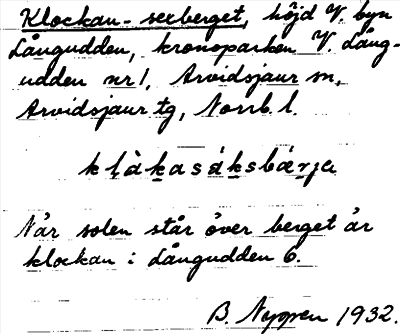 Klockan-sexberget, höjd V. byn
Långudden, kronoparken V. Lång-
udden nr 1, Arvidsjaur sn,
Arvidsjaur tg, Norrb. l.
klåkasáksbærja
När solen står över berget är
klockan i Långudden 6.
B. Nyppen 1932.